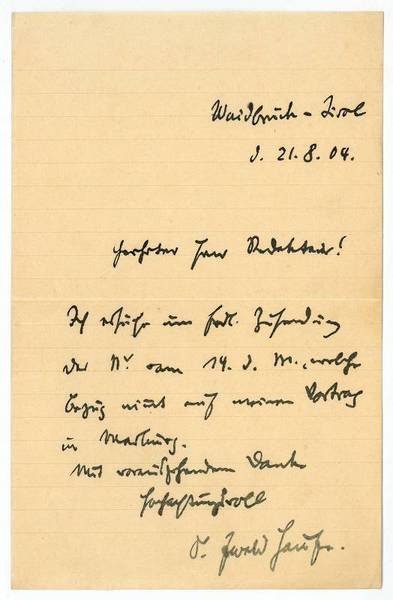 Waidbruck - Tirol
d. 21.8.04.
Geehrter Herr Redakteur!
Ich ersuche um frdl. Zusendung
der Nr. vom 14. d. M., welche
Bezug nimt auf meinen Vortrag
in Marburg.
Mit vorausgehendem Dank
Hochachtungsvoll
Dr. Ewald Haufe.